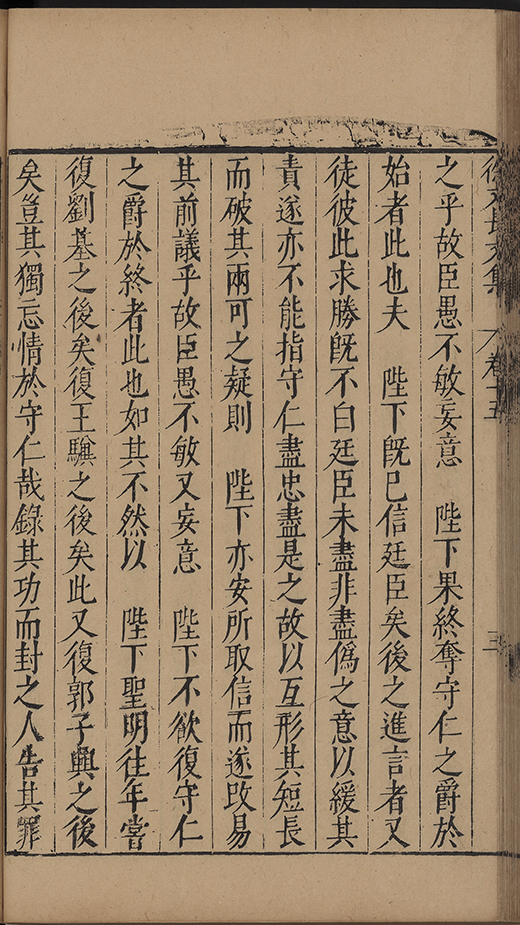 徐文長文集 卷十五 三
之乎故臣愚不敏妄意 陛下果終奪守仁之爵於
始者此也夫 陛下旣已信廷臣矣後之進言者又
徒彼此求勝旣不白廷臣未盡非盡僞之意以緩其
責遂亦不能指守仁盡忠盡是之故以互形其短長
而破其兩可之疑則 陛下亦安所取信而遂改易
其前議乎故臣愚不敏又妄意 陛下不欲復守仁
之爵於終者此也如其不然以 陛下聖明往年嘗
復劉基之後矣復王驥之後矣此又復郭子興之後
矣豈其獨忘情於守仁哉錄其功而封之人告其罪